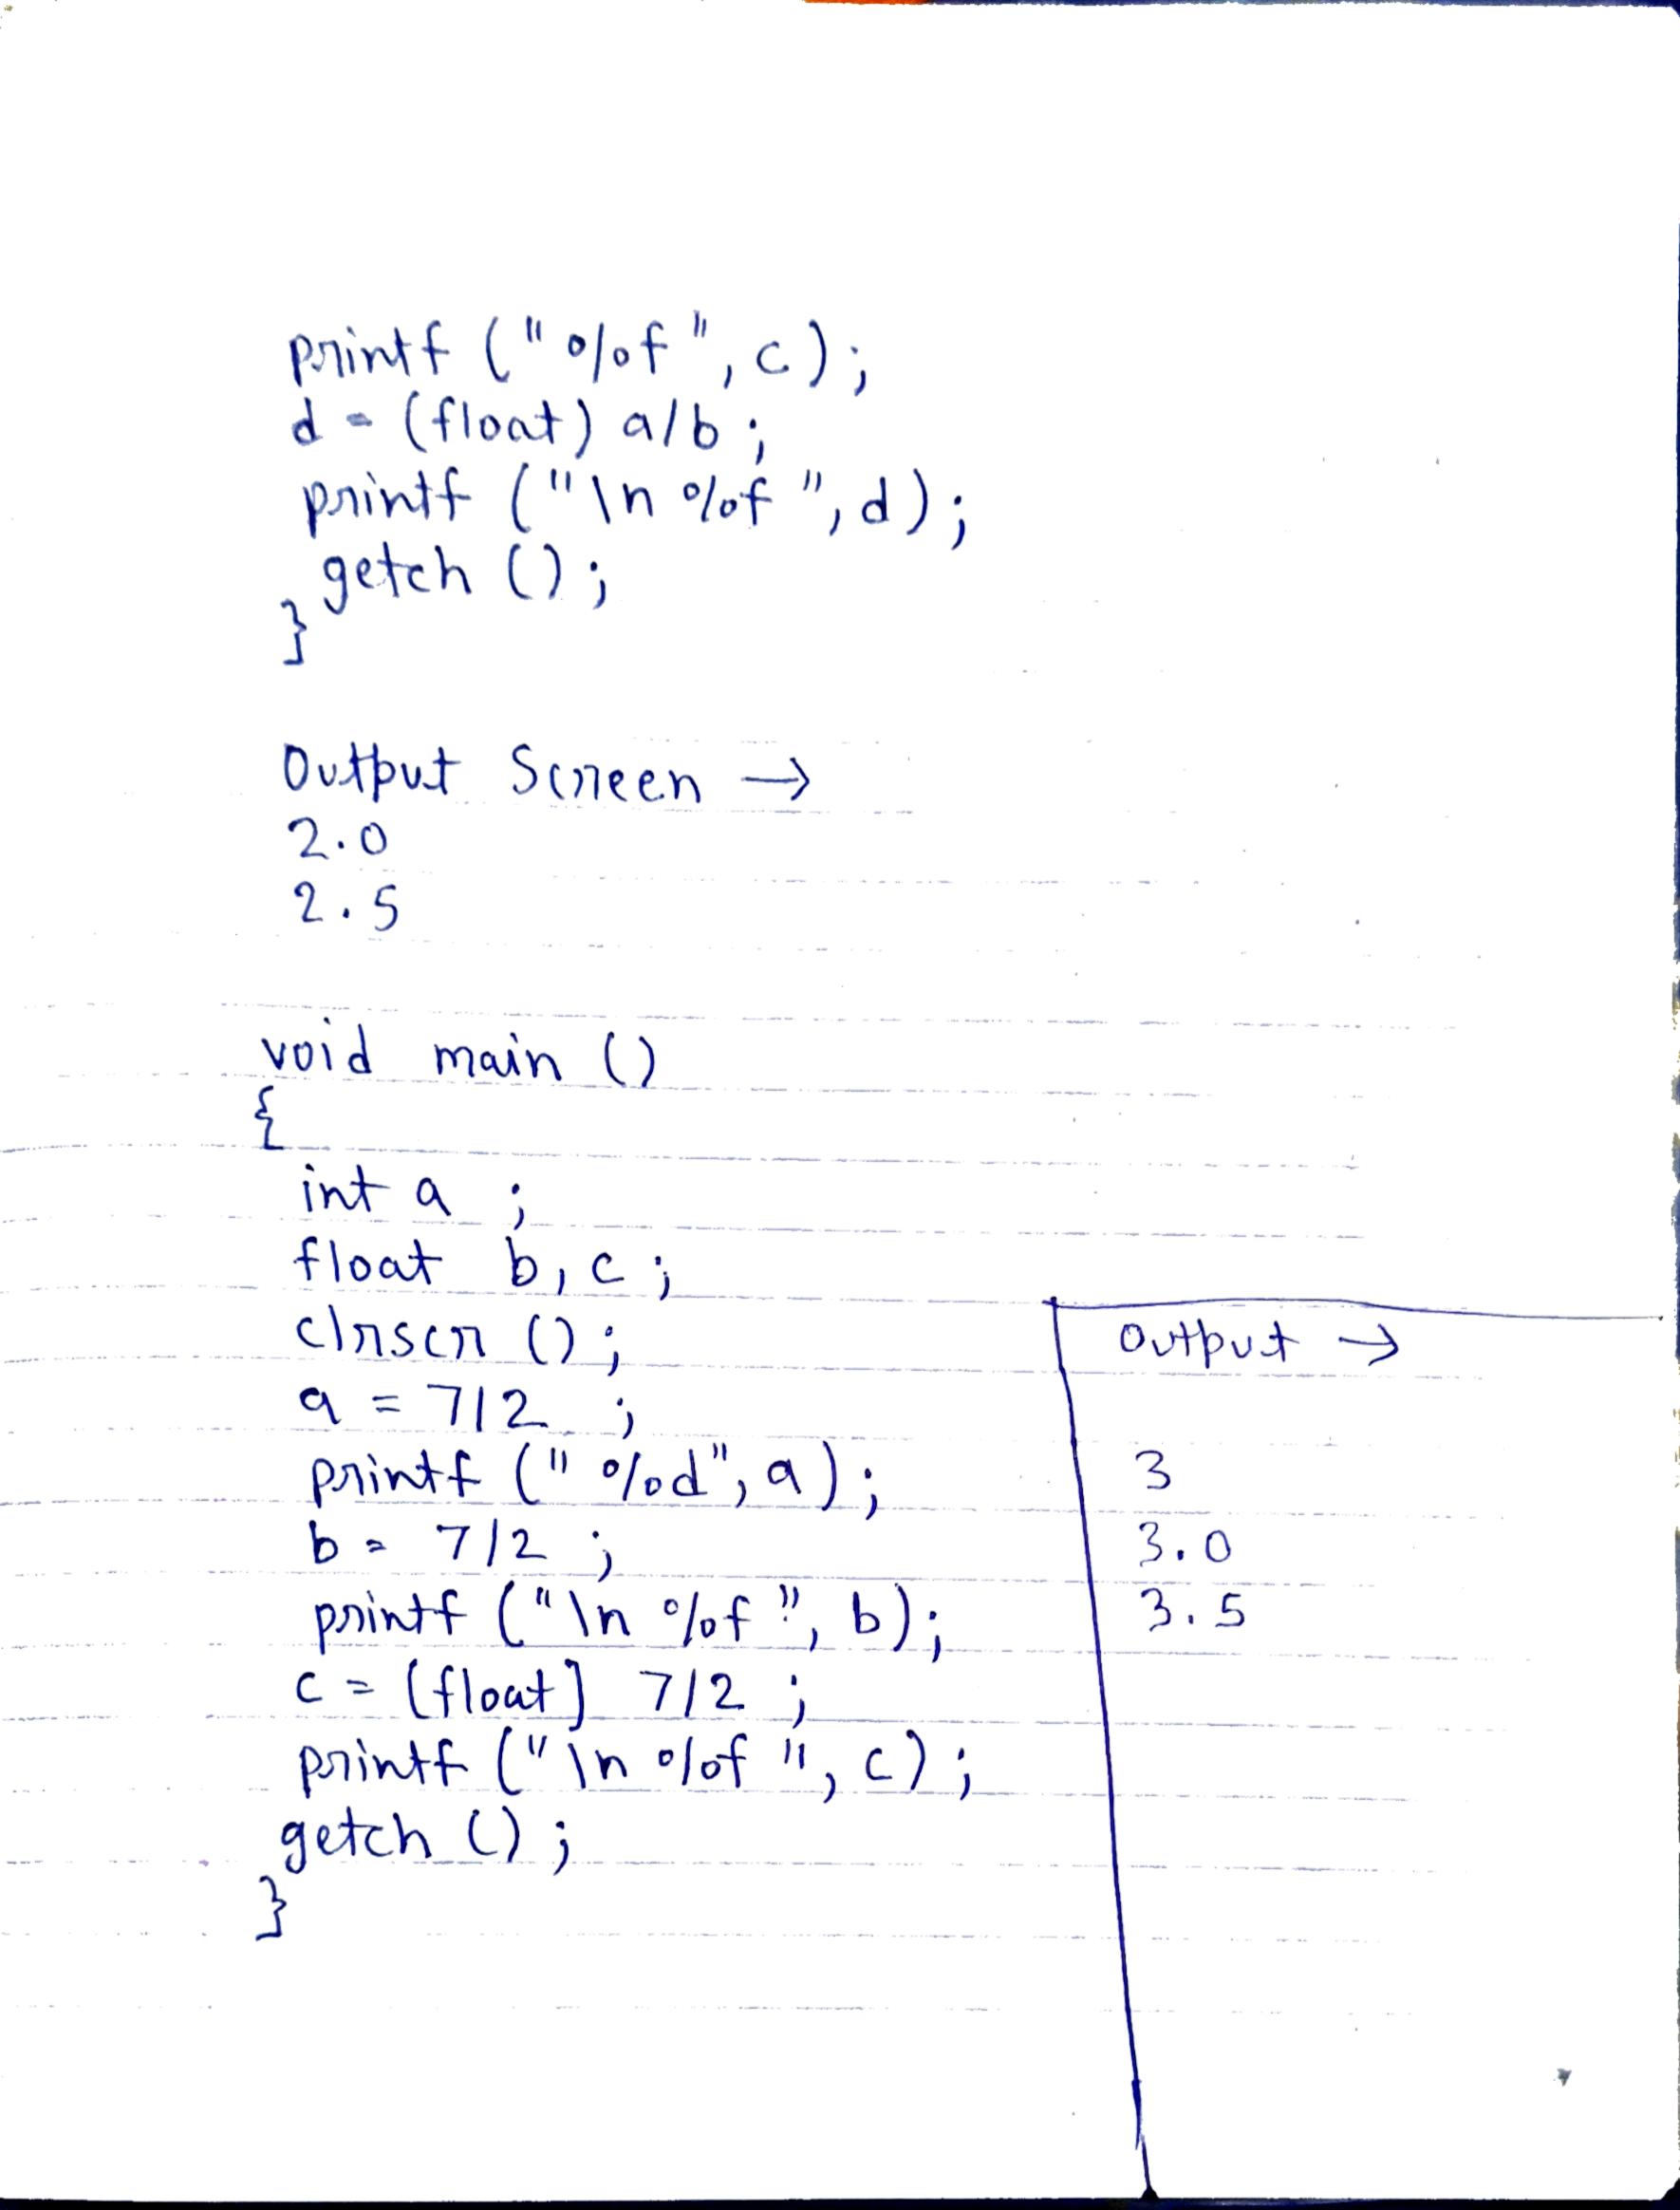 printf ("%f", c);
d = (float) a/b;
printf ("\n %f", d);
getch ();
}
Output Screen →
2.0
2.5
void main ()
{
int a ;
float b, c ;
clrscr ();
a = 7/2 ;
printf ("%d", a);
b = 7/2 ;
printf ("\n %f", b);
c = (float] 7/2 ;
printf ("\n %f", c);
getch ();
}
Output →
3
3.0
3.5